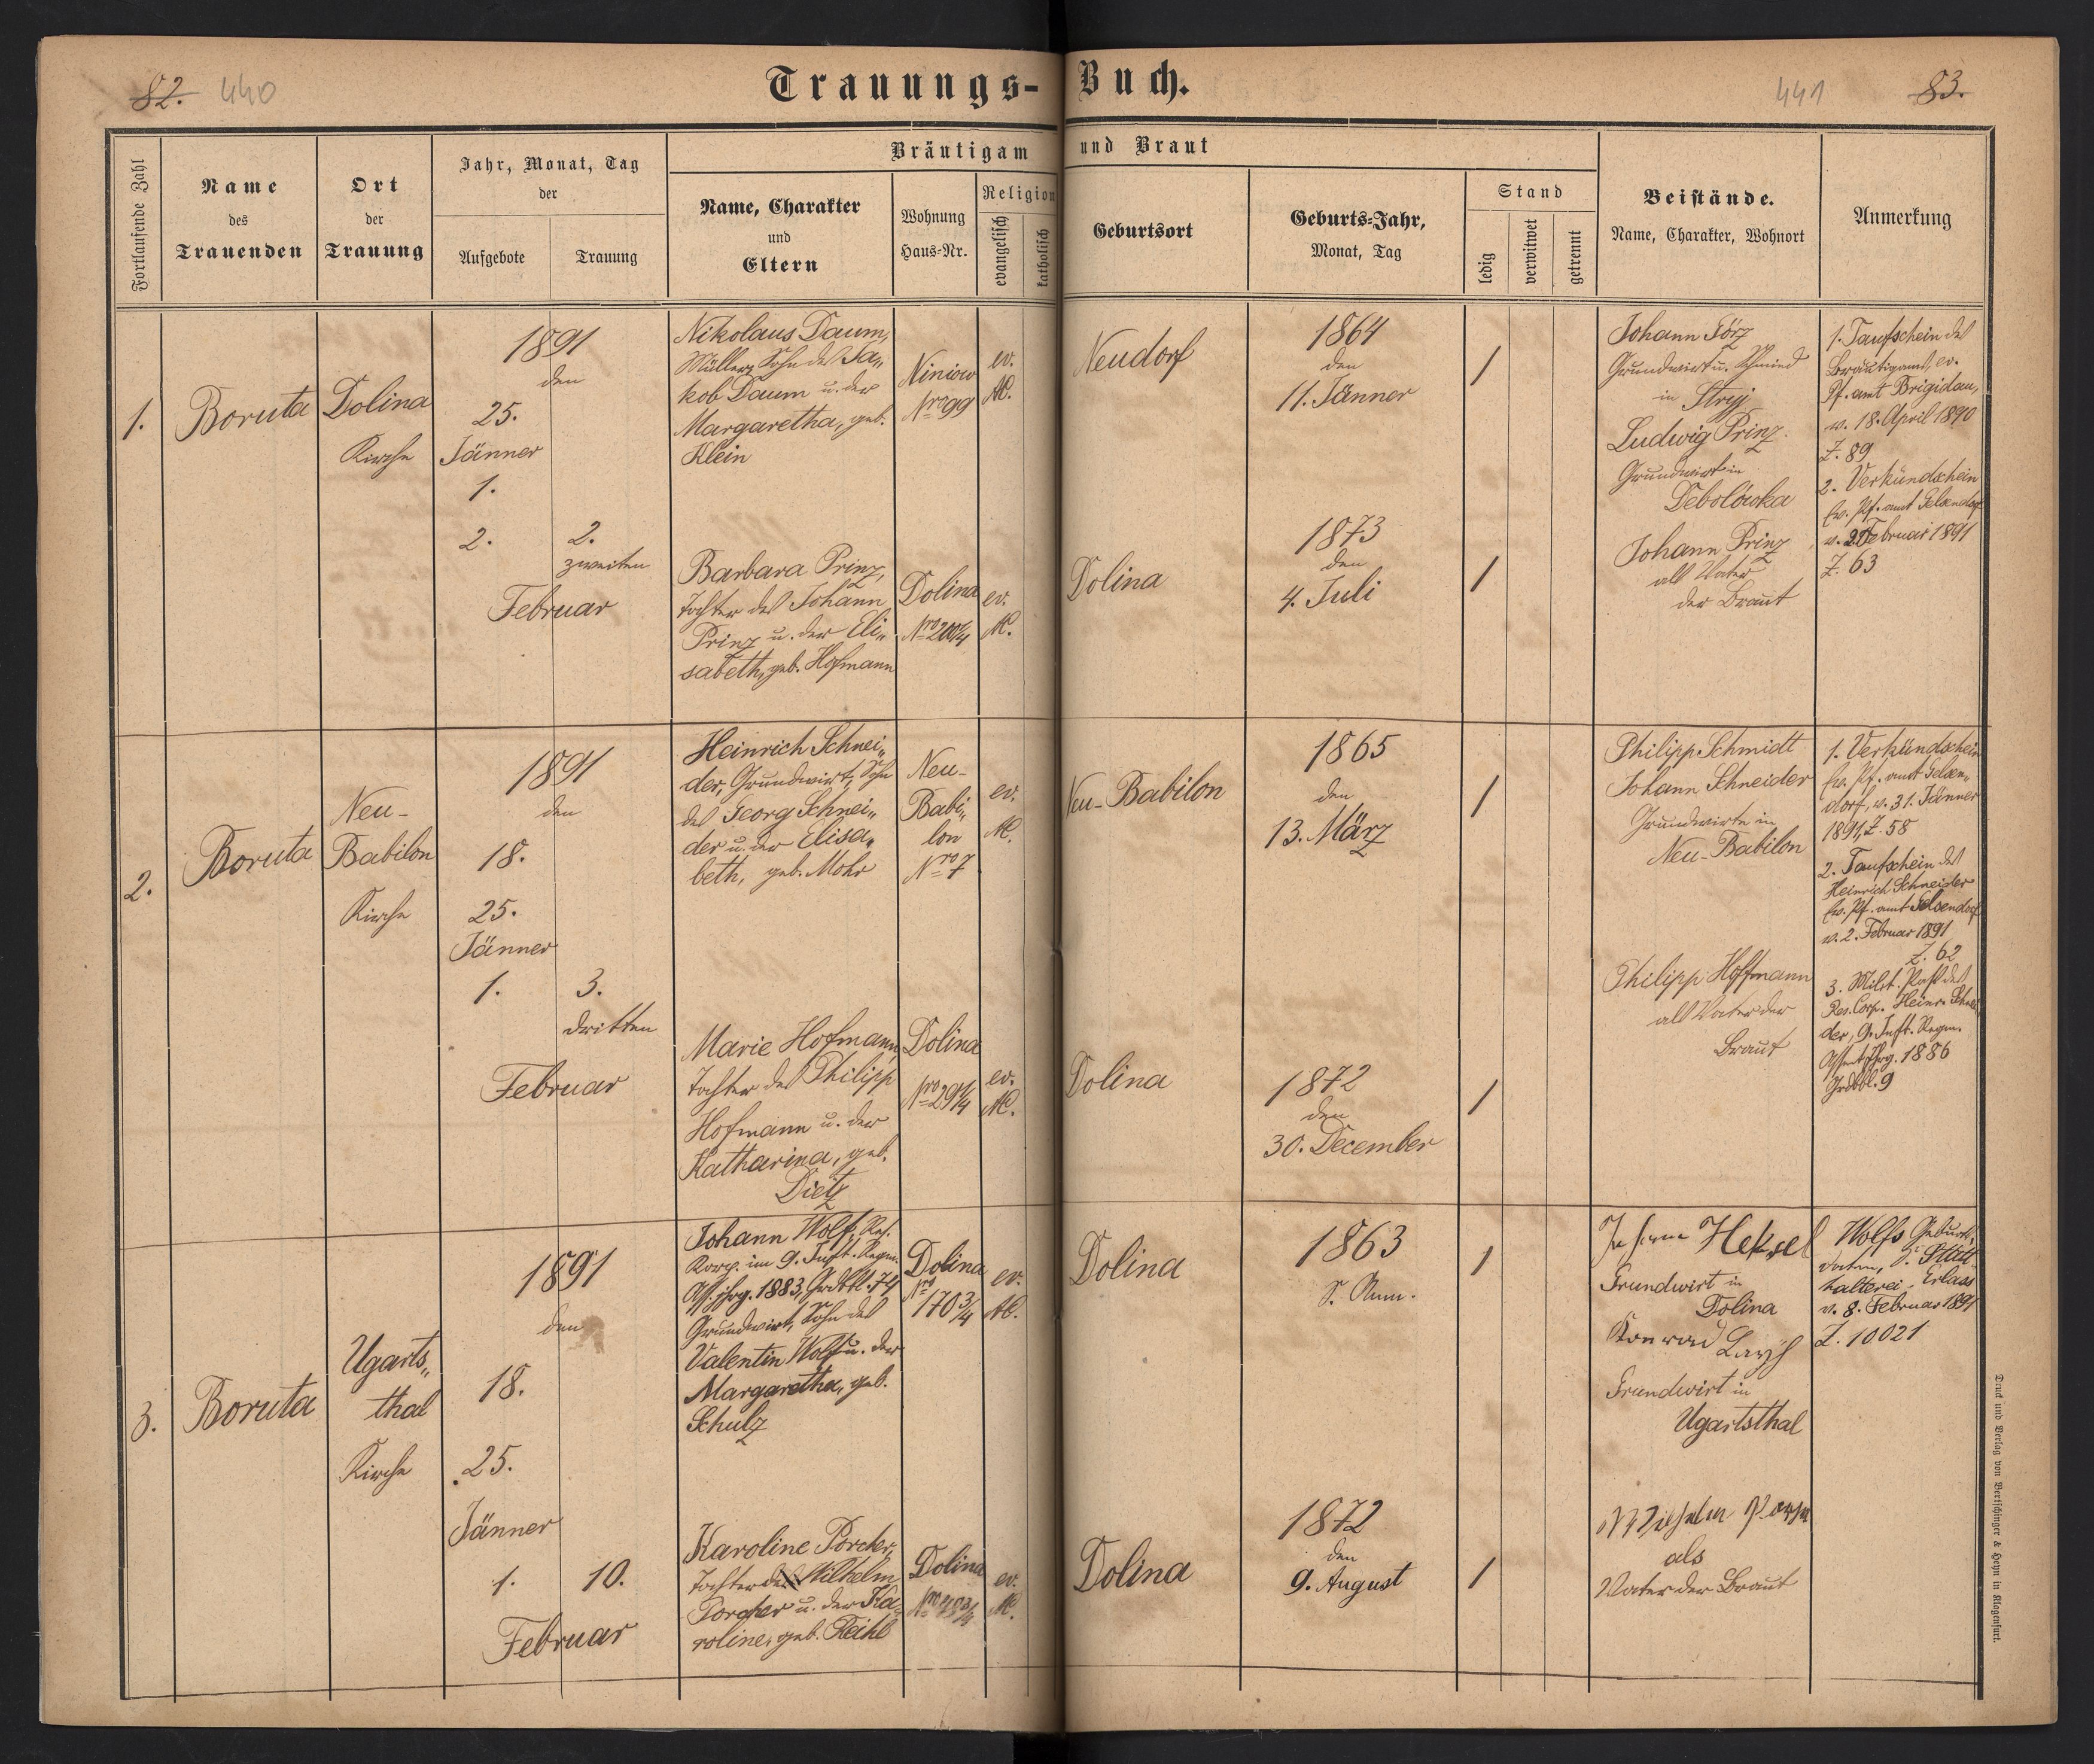 82. 440
Trauungs-Buch.
441 83.
Fortlaufende Zahl
Name
des
Trauenden
Ort
der
Trauung
Jahr, Monat, Tag
der
Aufgebote
Trauung
Bräutigam und Braut
Name, Charakter
und
Eltern
Wohnung
Haus-Nr.
Religion
evangelisch
katholisch
Geburtsort
Geburts-Jahr,
Monat, Tag
Stand
ledig
verwitwet
getrennt
Beistände.
Name, Charakter, Wohnort
Anmerkung
1.
Boruta
Dolina
Kirche
1891
den
25.
Jänner
1.
2. 2.
zweiten
Februar
Nikolaus Daum,
Müller, Sohn des Ja„
kob Daum u. der
Margaretha, geb.
Klein
Niniow
Nro 99
ev.
AC.
Neudorf
1864
den
11. Jänner
/
Barbara Prinz,
Tochter des Johann
Prinz u. der Eli„
sabeth, geb. Hofmann
Dolina
Nro 200/4
ev.
AC.
Dolina
1873
den
4. Juli
/
Johann Görz
Grundwirt u. Schmied
in Stryj
Ludwig Prinz
Grundwirt in
Debolówka
Johann Prinz
als Vater
der Braut
1. Taufschein des
Bräutigams, ev.
Pf. amt Brigidau,
v. 18. April 1890
Z. 89
2. Verkündschein
Ev. Pf. amt Gelsendorf
v. 2 Februar 1891
Z. 63
2.
Boruta
Neu-
Babilon
Kirche
1891
den
18.
25.
Jänner
1. 3.
dritten
Februar
Heinrich Schnei„
der, Grundwirt, Sohn
des Georg Schnei„
der u. der Elisa„
beth, geb. Mohr
Neu-
Babi„
lon
Nro 7
ev.
AC.
Neu-Babilon
1865
den
13. März
/
Marie Hofmann,
Tochter des Philipp
Hofmann u. der
Katharina, geb.
Dietz
Dolina
Nro 291/4
ev.
AC.
Dolina
1872
den
30. December
/
Philipp Schmidt
Johann Schneider
Grundwirte in
Neu-Babilon
Philipp Hoffmann
als Vater der
Braut
1. Verkündschein
Ev. Pf. amt Gelsen„
dorf, v. 31. Jänner
1891, Z. 58
2. Taufschein des
Heinrich Schneider
Ev. Pf. amt Gelsendorf
v. 2. Februar 1891
Z. 62
3. Milit. Paß des
Res. Corp. Heinr. Schnei
der, 9. Inft. Regm.
Assent. Jhrg. 1886
Grdbbl. 9
3.
Boruta
Ugarts„
thal
Kirche
1891
den
18.
25.
Jänner
1. 10.
Februar
Johann Wolf, Res.
Korp. im 9. Inft. Regm.
Ass. jhrg. 1883, Grdbbl. 74
Grundwirt, Sohn des
Valentin Wolf u. der
Margaretha, geb.
Schulz
Dolina
Nro
170 3/4
ev.
AC.
Dolina
1863
S. Anm.
/
Karoline Porcher,
Tochter des Wilhelm
Porcher u. der Ka„
roline, geb. Reihl
Dolina
ev.
AC.
Dolina
1872
den
9. August
/
Johann Heksel
Grundwirt in
Dolina
Konrad
Grundwirt in
Ugartsthal
Wilhelm
als
Vater der Braut
Wolfs Geburts„
daten, S. Statt„
halterei-Erlass
v. 8. Februar 1891
Z. 10021
Druck und Verlag von Bertschinger & Heyn in Klagenfurt.